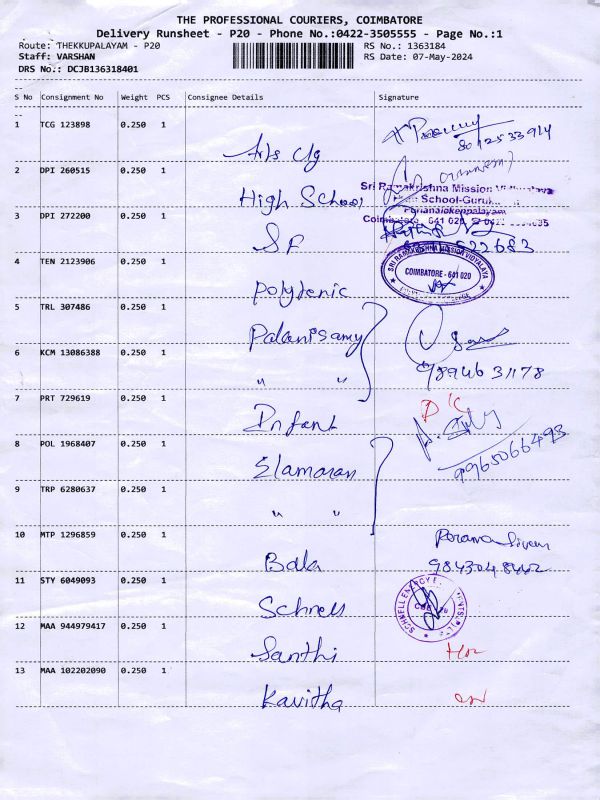 THE PROFESSIONAL COURIERS, COIMBATORE
Delivery Runsheet - P20 - Phone No.:0422-3505555 - Page No.:1
Route: THEKKUPALAYAM - P20 RS No.: 1363184
Staff: VARSHAN RS Date: 07-May-2024
DRS No.: DCJB136318401
S No Consignment No Weight PCS Consignee Details Signature
1 TCG 123898 0.250 1
Arts Clg 8012533914
2 DPI 260515 0.250 1
High School Sri Ramakrishna Mission Vidyalaya
School-Guruk
Coimbatore 641 020
3 DPI 272200 0.250 1
SF 522683
4 TEN 2123906 0.250 1
SRI RAMAKRISHNA MISSION VIDYALAYA
COIMBATORE - 641 020
Polytenic
5 TRL 307486 0.250 1
Palanisamy
6 KCM 13086388 0.250 1
" " 9894631178
7 PRT 729619 0.250 1
D'C
Infant
8 POL 1968407 0.250 1
Elamaran 9965066493
9 TRP 6280637 0.250 1
" "
10 MTP 1296859 0.250 1
Bala
11 STY 6049093 0.250 1
Schnell SCHNELL ENERGY
12 MAA 944979417 0.250 1
Santhi
13 MAA 102202090 0.250 1
Kavitha